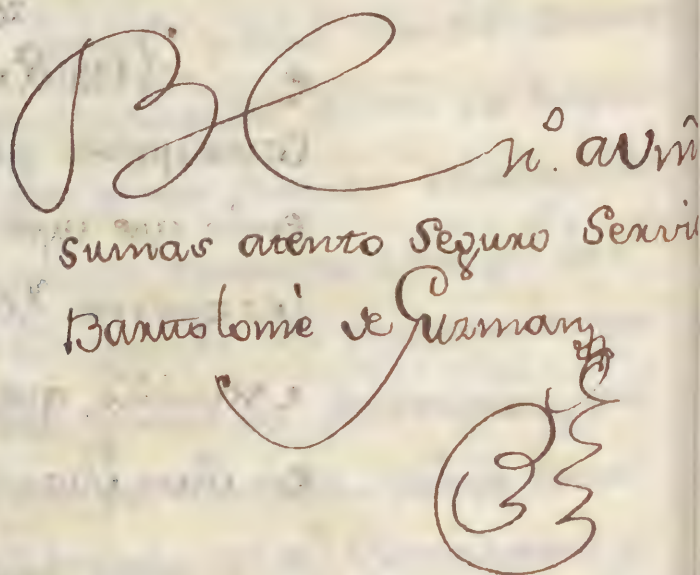 B L n.º avm
sumas atento Seguro Servi
Bartolomè de Guzman